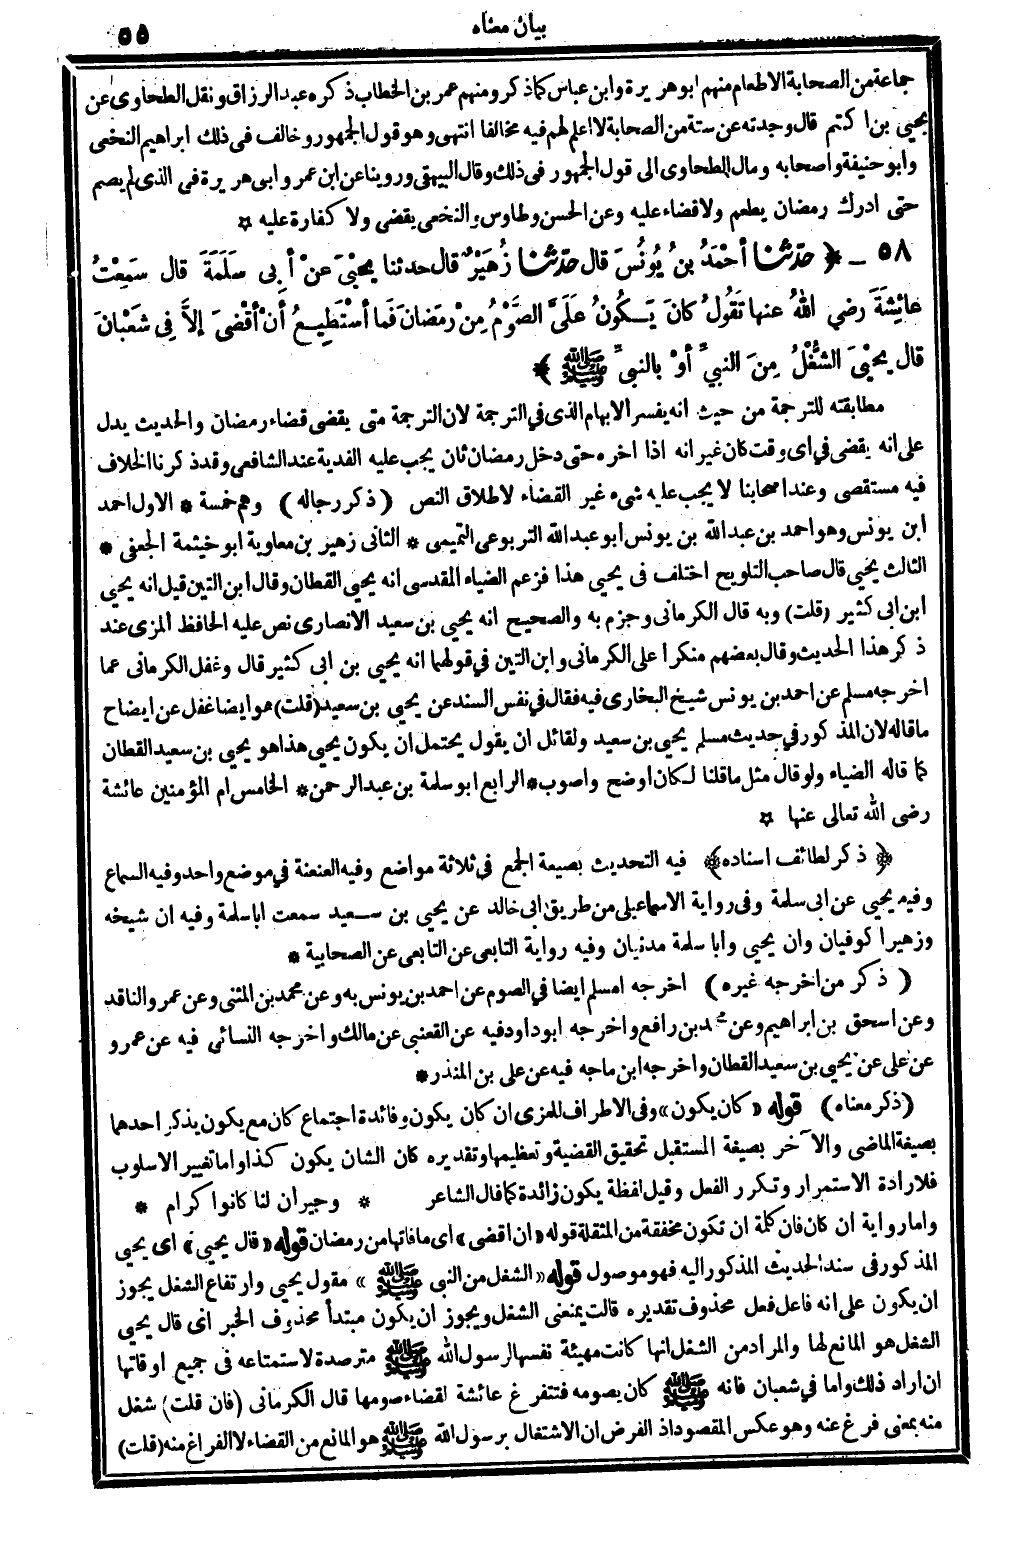 بيان معناه ٥٥
جماعة من الصحابة الاطعام منهم ابو هريرة وابن عباس كما ذكر ومنهم عمر بن الخطاب ذكره عبد الرزاق ونقل الطحاوى عن
يحيى بن اكتم قال وجدته عن ستة من الصحابة لا اعلم لهم فيه مخالفا انتهى وهو قول الجمهور وخالف فى ذلك ابراهيم النخعى
وابو حنيفة واصحابه ومال الطحاوى الى قول الجمهور فى ذلك وقال البيهقى وروينا عن ابن عمر وابى هريرة فى الذى لم يصم
حتى ادرك رمضان يطعم ولا قضاء عليه وعن الحسن وطاوس والنخعى يقضى ولا كفارة عليه ¤
٥٨ ــ ﴿ حدّثنا أحْمَدُ بنُ يُونُسَ قال حدّثنا زُهَيْرٌ قال حدثنا يحْيَى عَنْ أبِى سَلَمَةَ قال سَمِعْتُ
عائِشَةَ رضى اللهُ عنها تَقُولُ كانَ يَكُونُ عَلَىَّ الصَّوْمُ مِنْ رمَضَانَ فَما أسْتَطِيعُ أنْ أقْضِىَ إلاَّ فِى شَعْبَانَ
قال يحْيَى الشُّغْلُ مِنَ النبيِّ أوْ بالنبىِّ ﷺ ﴾
مطابقته للترجمة من حيث انه يفسر الابهام الذى فى الترجمة لان الترجمة متى يقضى قضاء رمضان والحديث يدل
على انه يقضى فى اى وقت كان غير انه اذا اخره حتى دخل رمضان ثان يجب عليه الفدية عند الشافعى وقد ذكرنا الخلاف
فيه مستقصى وعند اصحابنا لا يجب عليه شىء غير القضاء لاطلاق النص (ذكر رجاله) وهم خمسة * الاول احمد
ابن يونس وهو احمد بن عبد الله بن يونس ابو عبد الله التربوعى التميمى * الثانى زهير بن معاوية ابو خيثمة الجعفى *
الثالث يحيى قال صاحب التلويح اختلف فى يحيى هذا فزعم الضياء المقدسى انه يحيى القطان وقال ابن التين قيل انه يحيى
ابن ابى كثير (قلت) وبه قال الكرمانى وجزم به والصحيح انه يحيى بن سعيد الانصارى نص عليه الحافظ المزى عند
ذكر هذا الحديث وقال بعضهم منكرا على الكرمانى وابن التين فى قولهما انه يحيى بن ابى كثير قال وغفل الكرمانى عما
اخرجه مسلم عن احمد بن يونس شيخ البخارى فيه فقال فى نفس السند عن يحيى بن سعيد (قلت) هو ايضا غفل عن ايضاح
ما قاله لان المذكور فى حديث مسلم يحيى بن سعيد ولقائل ان يقول يحتمل ان يكون يحيى هذا هو يحيى بن سعيد القطان
كما قاله الضياء ولو قال مثل ما قلنا لكان اوضح واصوب * الرابع ابو سلمة بن عبد الرحمن * الخامس ام المؤمنين عائشة
رضى الله تعالى عنها ¤
﴿ ذكر لطائف اسناده ﴾ فيه التحديث بصيعة الجمع فى ثلاثة مواضع وفيه العنعنة فى موضع واحد وفيه السماع
وفيه يحيى عن ابى سلمة وفى رواية الاسماعيلى من طريق ابى خالد عن يحيى بن سعيد سمعت ابا سلمة وفيه ان شيخه
وزهيرا كوفيان وان يحيى وأبا سلمة مدنيان وفيه رواية التابعى عن التابعى عن الصحابية *
(ذكر من اخرجه غيره) اخرجه امسلم ايضا فى الصوم عن احمد بن يونس به وعن محمد بن المثنى وعن عمر والناقد
وعن اسحق بن ابراهيم وعن محمد بن رافع واخرجه ابو داود فيه عن القعنبى عن مالك واخرجه النسائى فيه عن عمرو
عن على عن يحيى بن سعيد القطان واخرجه ابن ماجه فيه عن على بن المنذر *
(ذكر معناه) قوله «كان يكون» وفى الاطراف للمزى ان كان يكون وفائدة اجتماع كان مع يكون يذكر احدهما
بصيغة الماضى والآخر بصيغة المستقبل تحقيق القضية وتعظيمها وتقديره كان الشان يكون كذا واما تغيير الاسلوب
فلارادة الاستمرار وتكرر الفعل وقيل لفظة يكون زائدة كما قال الشاعر * وجيران لنا كانوا كرام *
واما رواية ان كان فان كلمة ان تكون مخففة من المثقلة قوله «ان اقضى» اى ما فاتها من رمضان قوله «قال يحيى» اى يحيى
المذكور فى سند الحديث المذكور اليه فهو موصول قوله «الشغل من النبى ﷺ » مقول يحيى وارتفاع الشغل يجوز
ان يكون على انه فاعل فعل محذوف تقديره قالت يمنعنى الشغل ويجوز ان يكون مبتدأ محذوف الخبر اى قال يحيى
الشغل هو المانع لها والمراد من الشغل انها كانت مهيئة نفسها لرسول الله ﷺ مترصدة لاستمتاعه فى جميع اوقاتها
ان اراد ذلك واما فى شعبان فانه ﷺ كان يصومه فتتفرغ عائشة لقضاء صومها قال الكرمانى (فان قلت) شغل
منه بمعنى فرغ عنه وهو عكس المقصود اذ الفرض ان الاشتغال برسول الله ﷺ هو المانع من القضاء لا الفراغ منه (قلت)